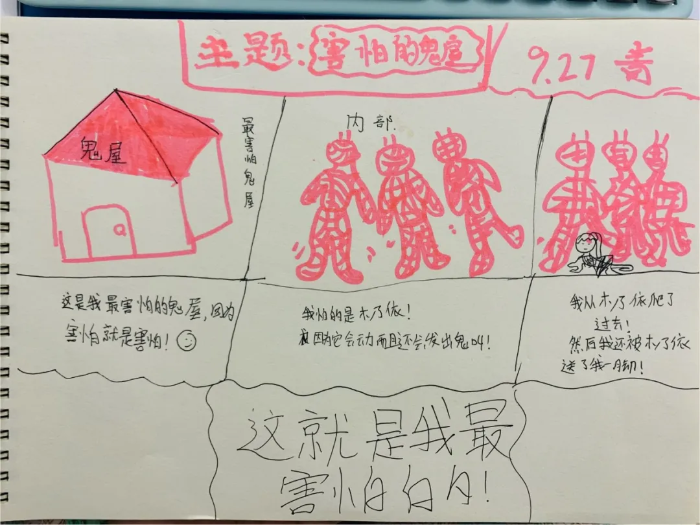 主题:害怕的鬼屋
9.27
鬼屋
最害怕鬼屋
内部
这是我最害怕的鬼屋,因为
害怕就是害怕!
我怕的是木乃依!
因为它会动而且还会发出鬼叫!
我从木乃依爬了
过去!
然后我还被木乃依
送了我一脚!
这就是我最
害怕的!